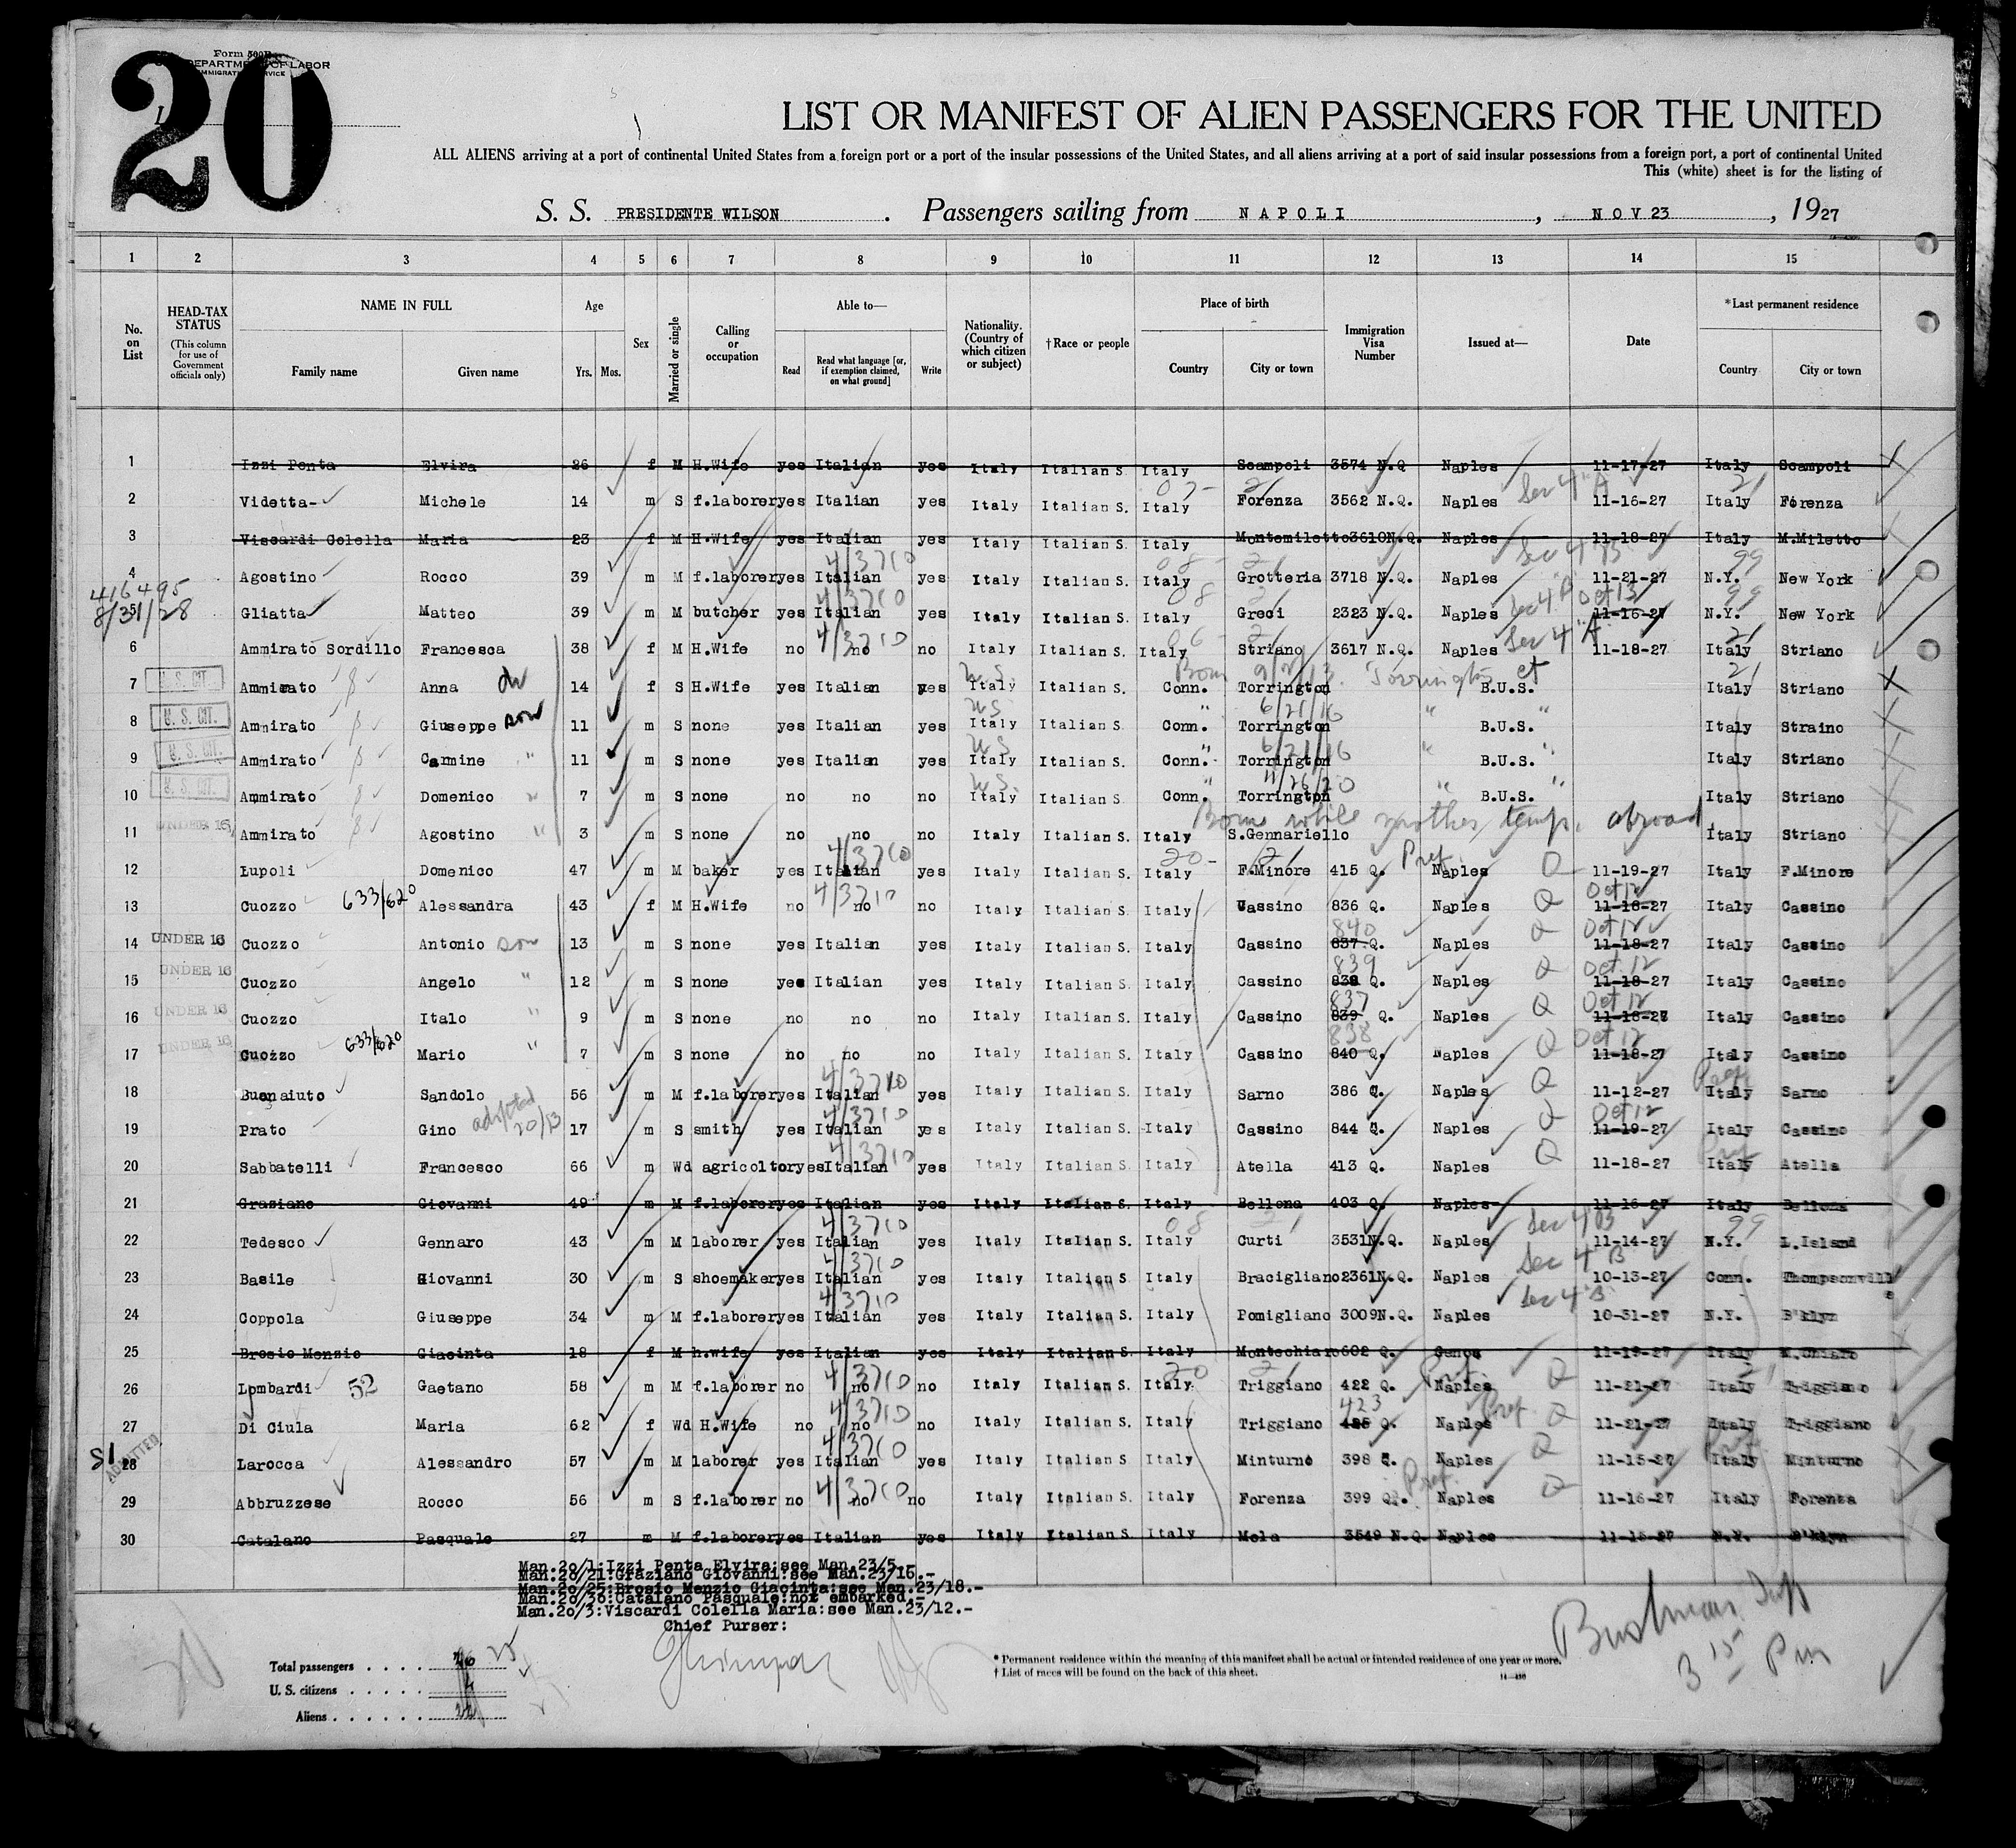 Form 500B
U. S. DEPARTMENT OF LABOR
IMMIGRATION SERVICE
20
LIST OR MANIFEST OF ALIEN PASSENGERS FOR THE UNITED
ALL ALIENS arriving at a port of continental United States from a foreign port or a port of the insular possessions of the United States, and all aliens arriving at a port of said insular possessions from a foreign port, a port of continental United
This (white) sheet is for the listing of
S. S. PRESIDENTE WILSON . Passengers sailing from NAPOLI , NOV 23 , 1927
1 2 3 4 5 6 7 8 9 10 11 12 13 14 15
No. on List
HEAD-TAX STATUS (This column for use of Government officials only)
NAME IN FULL
Family name
Given name
Age
Yrs. Mos.
Sex
Married or single
Calling or occupation
Able to—
Read
Read what language [or, if exemption claimed, on what ground]
Write
Nationality. (Country of which citizen or subject)
†Race or people
Place of birth
Country
City or town
Immigration Visa Number
Issued at—
Date
*Last permanent residence
Country
City or town
1 Izzi Penta Elvira 26 f M H.Wife yes Italian yes Italy Italian S. Italy Scampoli 3574 N.Q Naples 11-17-27 Italy Scampoli
2 Videtta- Michele 14 m S f.laborer yes Italian yes Italy Italian S. Italy Forenza 3562 N.Q. Naples Sec 4 "A 11-16-27 Italy Forenza
3 Viscardi Colella Maria 23 f M H.Wife yes Italian yes Italy Italian S. Italy Montemiletto 3610N.Q. Naples 11-18-27 Italy M.Miletto
4 Agostino Rocco 39 m M f.laborer yes Italian 4/3710 yes Italy Italian S. Italy Grotteria 3718 N.Q. Naples Sec 4 "B 11-21-27 N.Y. 99 New York
416495
8/31/28
5 Gliatta Matteo 39 m M butcher yes Italian 4/3710 yes Italy Italian S. Italy Greci 2323 N.Q. Naples Sec 4 "A Oct 13 11-16-27 N.Y. 99 New York
6 Ammirato Sordillo Francesca 38 f M H.Wife no no 4/3710 no Italy Italian S. Italy Striano 3617 N.Q. Naples Sec 4 "A 11-18-27 Italy Striano
7 U. S. CIT. Ammirato Anna f 14 S H.Wife yes Italian yes U.S. Italy Italian S. Conn. Torrington Born Torrington ct B.U.S. Italy Striano
8 U. S. CIT. Ammirato Giuseppe son 11 m S none yes Italian yes U.S. Italy Italian S. Conn. Torrington 6/21/16 " B.U.S. " Italy Straino
9 U. S. CIT. Ammirato Carmine " 11 m S none yes Italian yes U.S. Italy Italian S. Conn. Torrington 6/21/16 " B.U.S. " Italy Striano
10 U. S. CIT. Ammirato Domenico " 7 m S none no no no U.S. Italy Italian S. Conn. Torrington 11/26/20 " B.U.S. " Italy Striano
11 UNDER 16 Ammirato Agostino " 3 m S none no no no Italy Italian S. Italy S.Gennariello Born while mother temp. abroad Italy Striano
12 Lupoli Domenico 47 m M baker yes Italian 4/3710 yes Italy Italian S. Italy F.Minore 415 Q. Pref. Naples Q 11-19-27 Italy F.Minore
13 Cuozzo 633/620 Alessandra 43 f M H.Wife no no 4/3710 no Italy Italian S. Italy Cassino 836 Q. Naples Q Oct 12 11-18-27 Italy Cassino
14 UNDER 16 Cuozzo Antonio son 13 m S none yes Italian yes Italy Italian S. Italy Cassino 840 837 Q. Naples Q Oct 12 11-18-27 Italy Cassino
15 UNDER 16 Cuozzo Angelo " 12 m S none yes Italian yes Italy Italian S. Italy Cassino 839 838 Q. Naples Q Oct 12 11-18-27 Italy Cassino
16 UNDER 16 Cuozzo Italo " 9 m S none no no no Italy Italian S. Italy Cassino 837 839 Q. Naples Q Oct 12 11-18-27 Italy Cassino
17 UNDER 16 Cuozzo 633/620 Mario " 7 m S none no no no Italy Italian S. Italy Cassino 838 840 Q. Naples Q Oct 12 11-18-27 Italy Cassino
18 Buonaiuto Sandolo 56 m M f.laborer yes Italian 4/3710 yes Italy Italian S. Italy Sarno 386 Q. Naples Q 11-12-27 Pref Italy Sarno
19 Prato Gino 17 m S smith yes Italian 4/3710 yes Italy Italian S. Italy Cassino 844 Q. Naples Q Oct 12 11-19-27 Italy Cassino
20 Sabbatelli Francesco 66 m Wd agricoltor yes Italian 4/3710 yes Italy Italian S. Italy Atella 413 Q. Naples Q 11-18-27 Pref Italy Atella
21 Graziano Giovanni 49 m M f.laborer yes Italian yes Italy Italian S. Italy Bellona 403 Q. Naples 11-16-27 Italy Bellona
22 Tedesco Gennaro 43 m M laborer yes Italian 4/3710 yes Italy Italian S. Italy Curti 3531N.Q. Naples Sec 4 "B 11-14-27 N.Y. 99 L.Island
23 Basile Giovanni 30 m S shoemaker yes Italian 4/3710 yes Italy Italian S. Italy Bracigliano 2361N.Q. Naples Sec 4 "B 10-13-27 Conn. Thompsonville
24 Coppola Giuseppe 34 m M f.laborer yes Italian 4/3710 yes Italy Italian S. Italy Pomigliano 3009N.Q. Naples Sec 4 "B 10-31-27 N.Y. B'klyn
25 Brosio Menzio Giacinta 18 f M h.wife yes Italian yes Italy Italian S. Italy Montechiaro 602 Q. Genoa 11-19-27 Italy M.Chiaro
26 Lombardi 52 Gaetano 58 m M f.laborer no no 4/3710 no Italy Italian S. Italy Triggiano 422 Q. Pref. Naples Q 11-21-27 Italy Triggiano
27 Di Ciula Maria 62 f Wd H.Wife no no 4/3710 no Italy Italian S. Italy Triggiano 423 Q. Naples Pref. Q 11-21-27 Italy Triggiano
S1 ADMITTED
28 Larocca Alessandro 57 m M laborer yes Italian 4/3710 yes Italy Italian S. Italy Minturno 398 Q. Naples Q 11-15-27 Italy Minturno
29 Abbruzzese Rocco 56 m S f.laborer no no 4/3710 no Italy Italian S. Italy Forenza 399 Q. Pref. Naples Q 11-16-27 Italy Forenza
30 Catalano Pasquale 27 m M f.laborer yes Italian yes Italy Italian S. Italy Mola 3549 N.Q. Naples 11-15-27 N.Y. B'klyn
Man.20/1:Izzi Penta Elvira:see Man.23/5.-
Man.20/21:Graziano Giovanni:see Man.23/16.-
Man.20/25:Brosio Menzio Giacinta:see Man.23/18.-
Man.20/30:Catalano Pasquale:not embarked.-
Man.20/3:Viscardi Colella Maria:see Man.23/12.-
Chief Purser:
Total passengers
U. S. citizens 4
Aliens 22
* Permanent residence within the meaning of this manifest shall be actual or intended residence of one year or more.
† List of races will be found on the back of this sheet.
3 15 Pm